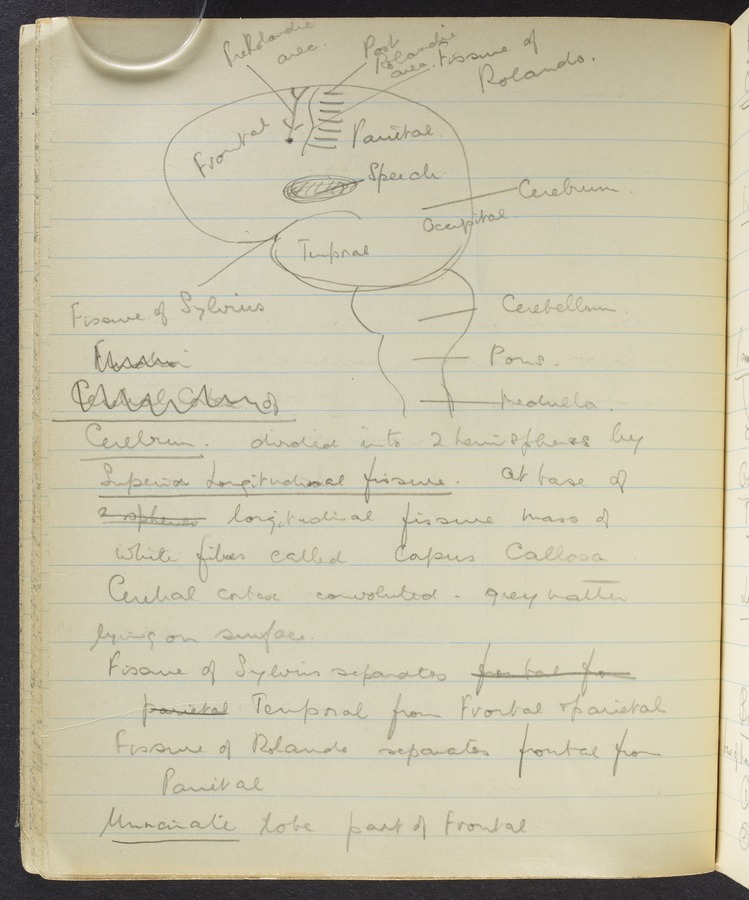 PreRolandic
area.
Post
Rolandic
area.
Fissure of
Rolando.
Frontal
Parietal
Speech
Cerebrum.
Occipital
Temporal
Fissure of Sylvius
Cerebellum
Pons.
Medulla.
Cerebrum. divided into 2 hemispheres by
Superior Longitudinal fissure. At base of
2 spheres longitudinal fissure mass of
white fibres called Corpus Callosa
Cerebral cortex convoluted - grey matter
lying on surface.
Fissure of Sylvius separates frontal from
parietal Temporal from Frontal & parietal
Fissure of Rolando separates frontal from
Parietal
Uncinate lobe part of Frontal